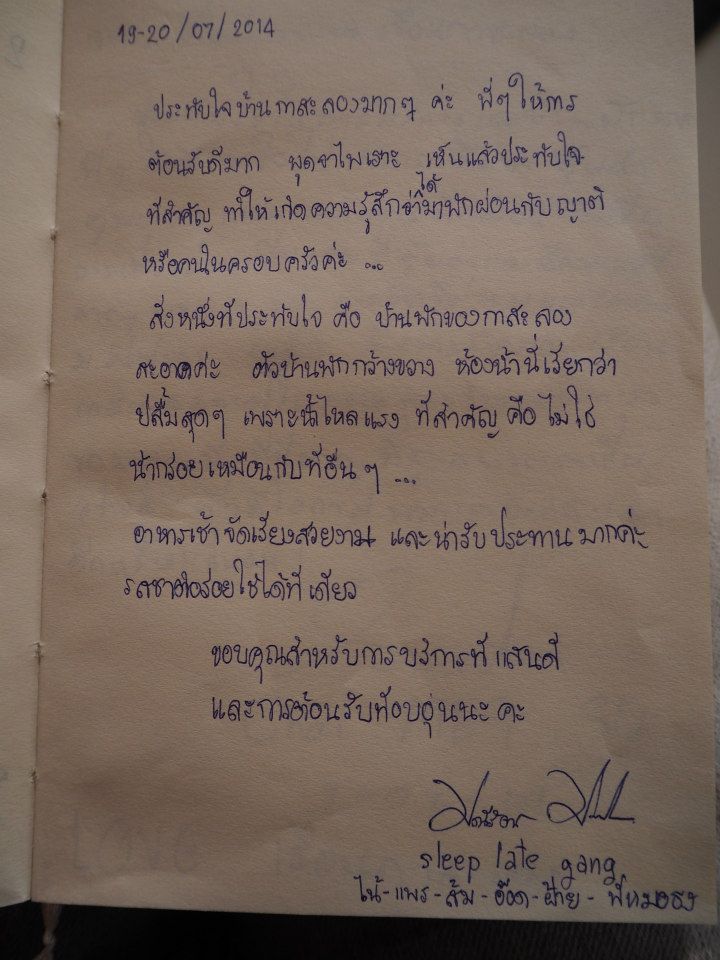 19-20/07/2014
ประทับใจบ้านกาสะลองมากๆ ค่ะ พี่ๆ ให้การ
ต้อนรับดีมาก พูดจาไพเราะ เห็นแล้วประทับใจ
ที่สำคัญ ทำให้เกิดความรู้สึกว่าได้มาพักผ่อนกับญาติ
หรือคนในครอบครัวค่ะ ...
สิ่งหนึ่งที่ประทับใจ คือ บ้านพักของกาสะลอง
สะอาดค่ะ ตัวบ้านพักกว้างขวาง ห้องน้ำนี่เรียกว่า
ปลื้มสุดๆ เพราะน้ำไหลแรง ที่สำคัญ คือ ไม่ใช่
น้ำกร่อยเหมือนกับที่อื่นๆ ...
อาหารเช้า จัดเรียงสวยงาม และน่ารับประทานมากค่ะ
รสชาติอร่อยใช้ได้ทีเดียว
ขอบคุณสำหรับการบริการที่แสนดี
และการต้อนรับที่อบอุ่นนะคะ
sleep late gang
-แพร-ส้ม-อ๊อด-ฝ้าย-